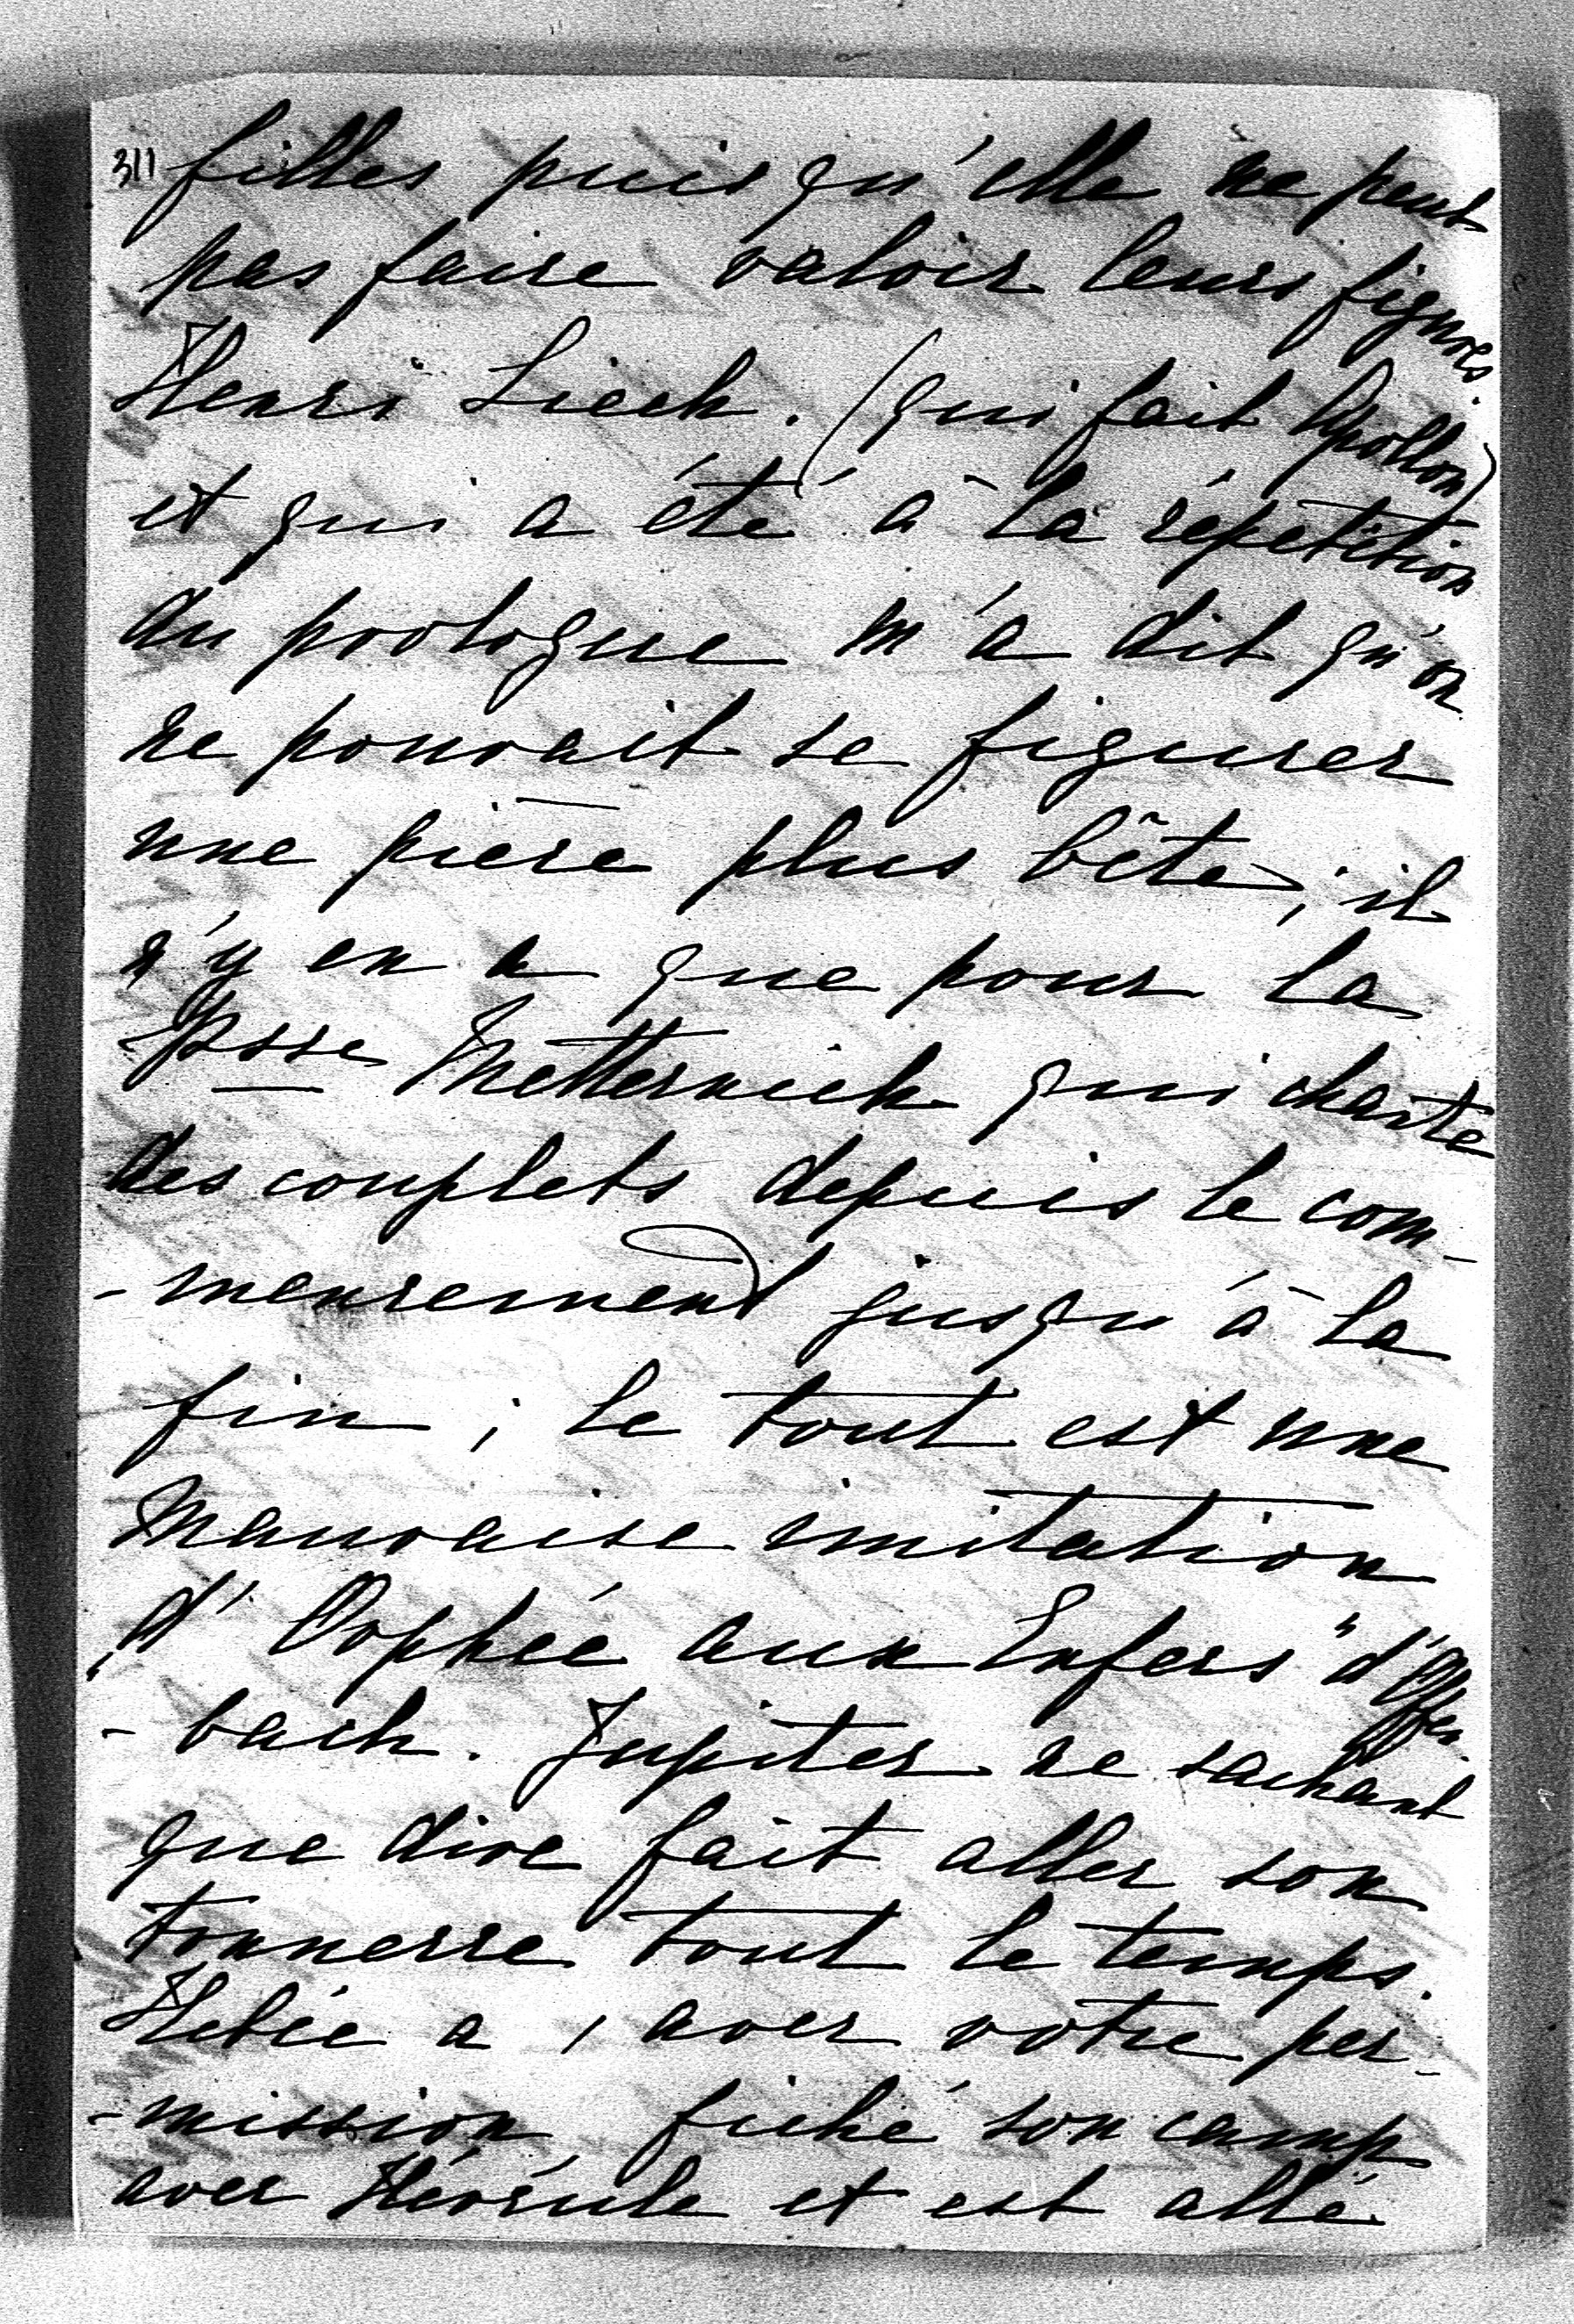 311 filles puisqu'elle ne peut
pas faire valoir leurs figures.
Henri Liech. (qui fait Apollon)
et qui a été à la répétition
du prologue m'a dit qu'on
ne pouvait se figurer
une pièce plus bête; il
n'y en a que pour la
Psse Metternich qui chante
des couplets depuis le com-
-mencement jusqu'à la
fin; le tout est une
mauvaise imitation
„d'Orphée aux Enfers" d'Offen-
-bach. Jupiter ne sachant
que dire fait aller son
tonnerre tout le temps.
Hébée a, avec votre per-
-mission fiché son camp
avec Hércule et est allé